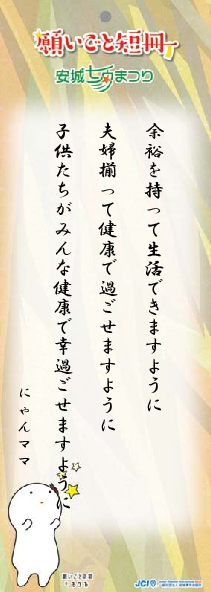 願いごと短冊
安城七夕まつり
余裕を持って生活できますように
夫婦揃って健康で過ごせますように
子供たちがみんな健康で幸過ごせますように
にゃんママ
願いごと短冊
JCI